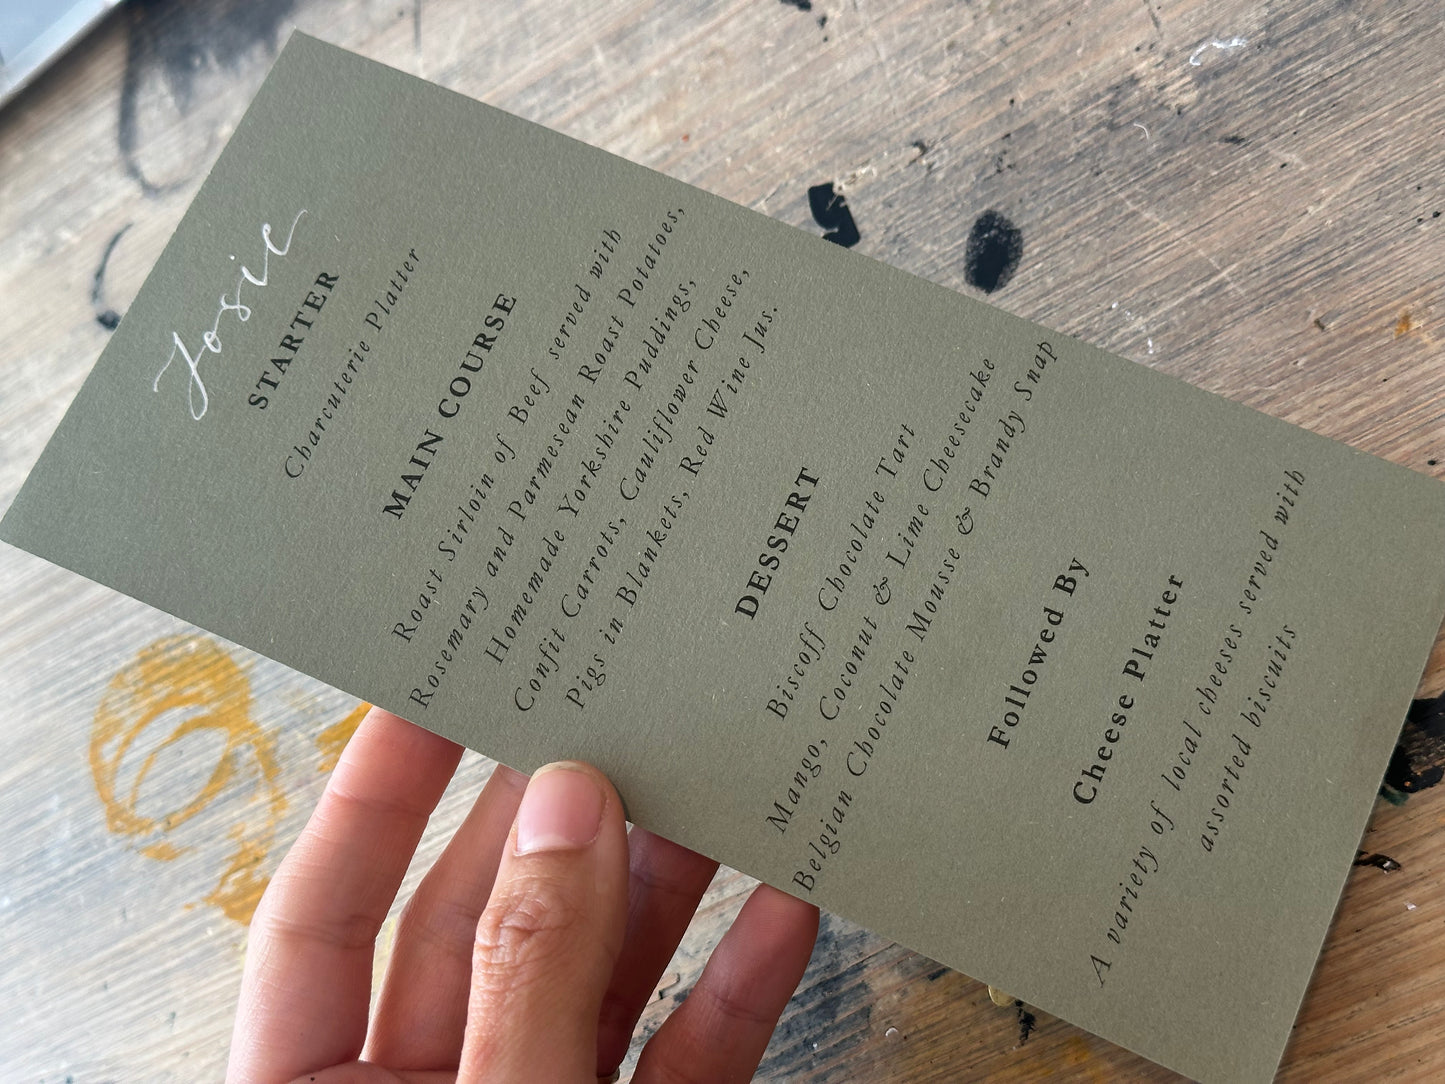 Josie
STARTER
Charcuterie Platter
MAIN COURSE
Roast Sirloin of Beef served with
Rosemary and Parmesean Roast Potatoes,
Homemade Yorkshire Puddings,
Confit Carrots, Cauliflower Cheese,
Pigs in Blankets, Red Wine Jus.
DESSERT
Biscoff Chocolate Tart
Mango, Coconut & Lime Cheesecake
Belgian Chocolate Mousse & Brandy Snap
Followed By
Cheese Platter
A variety of local cheeses served with
assorted biscuits